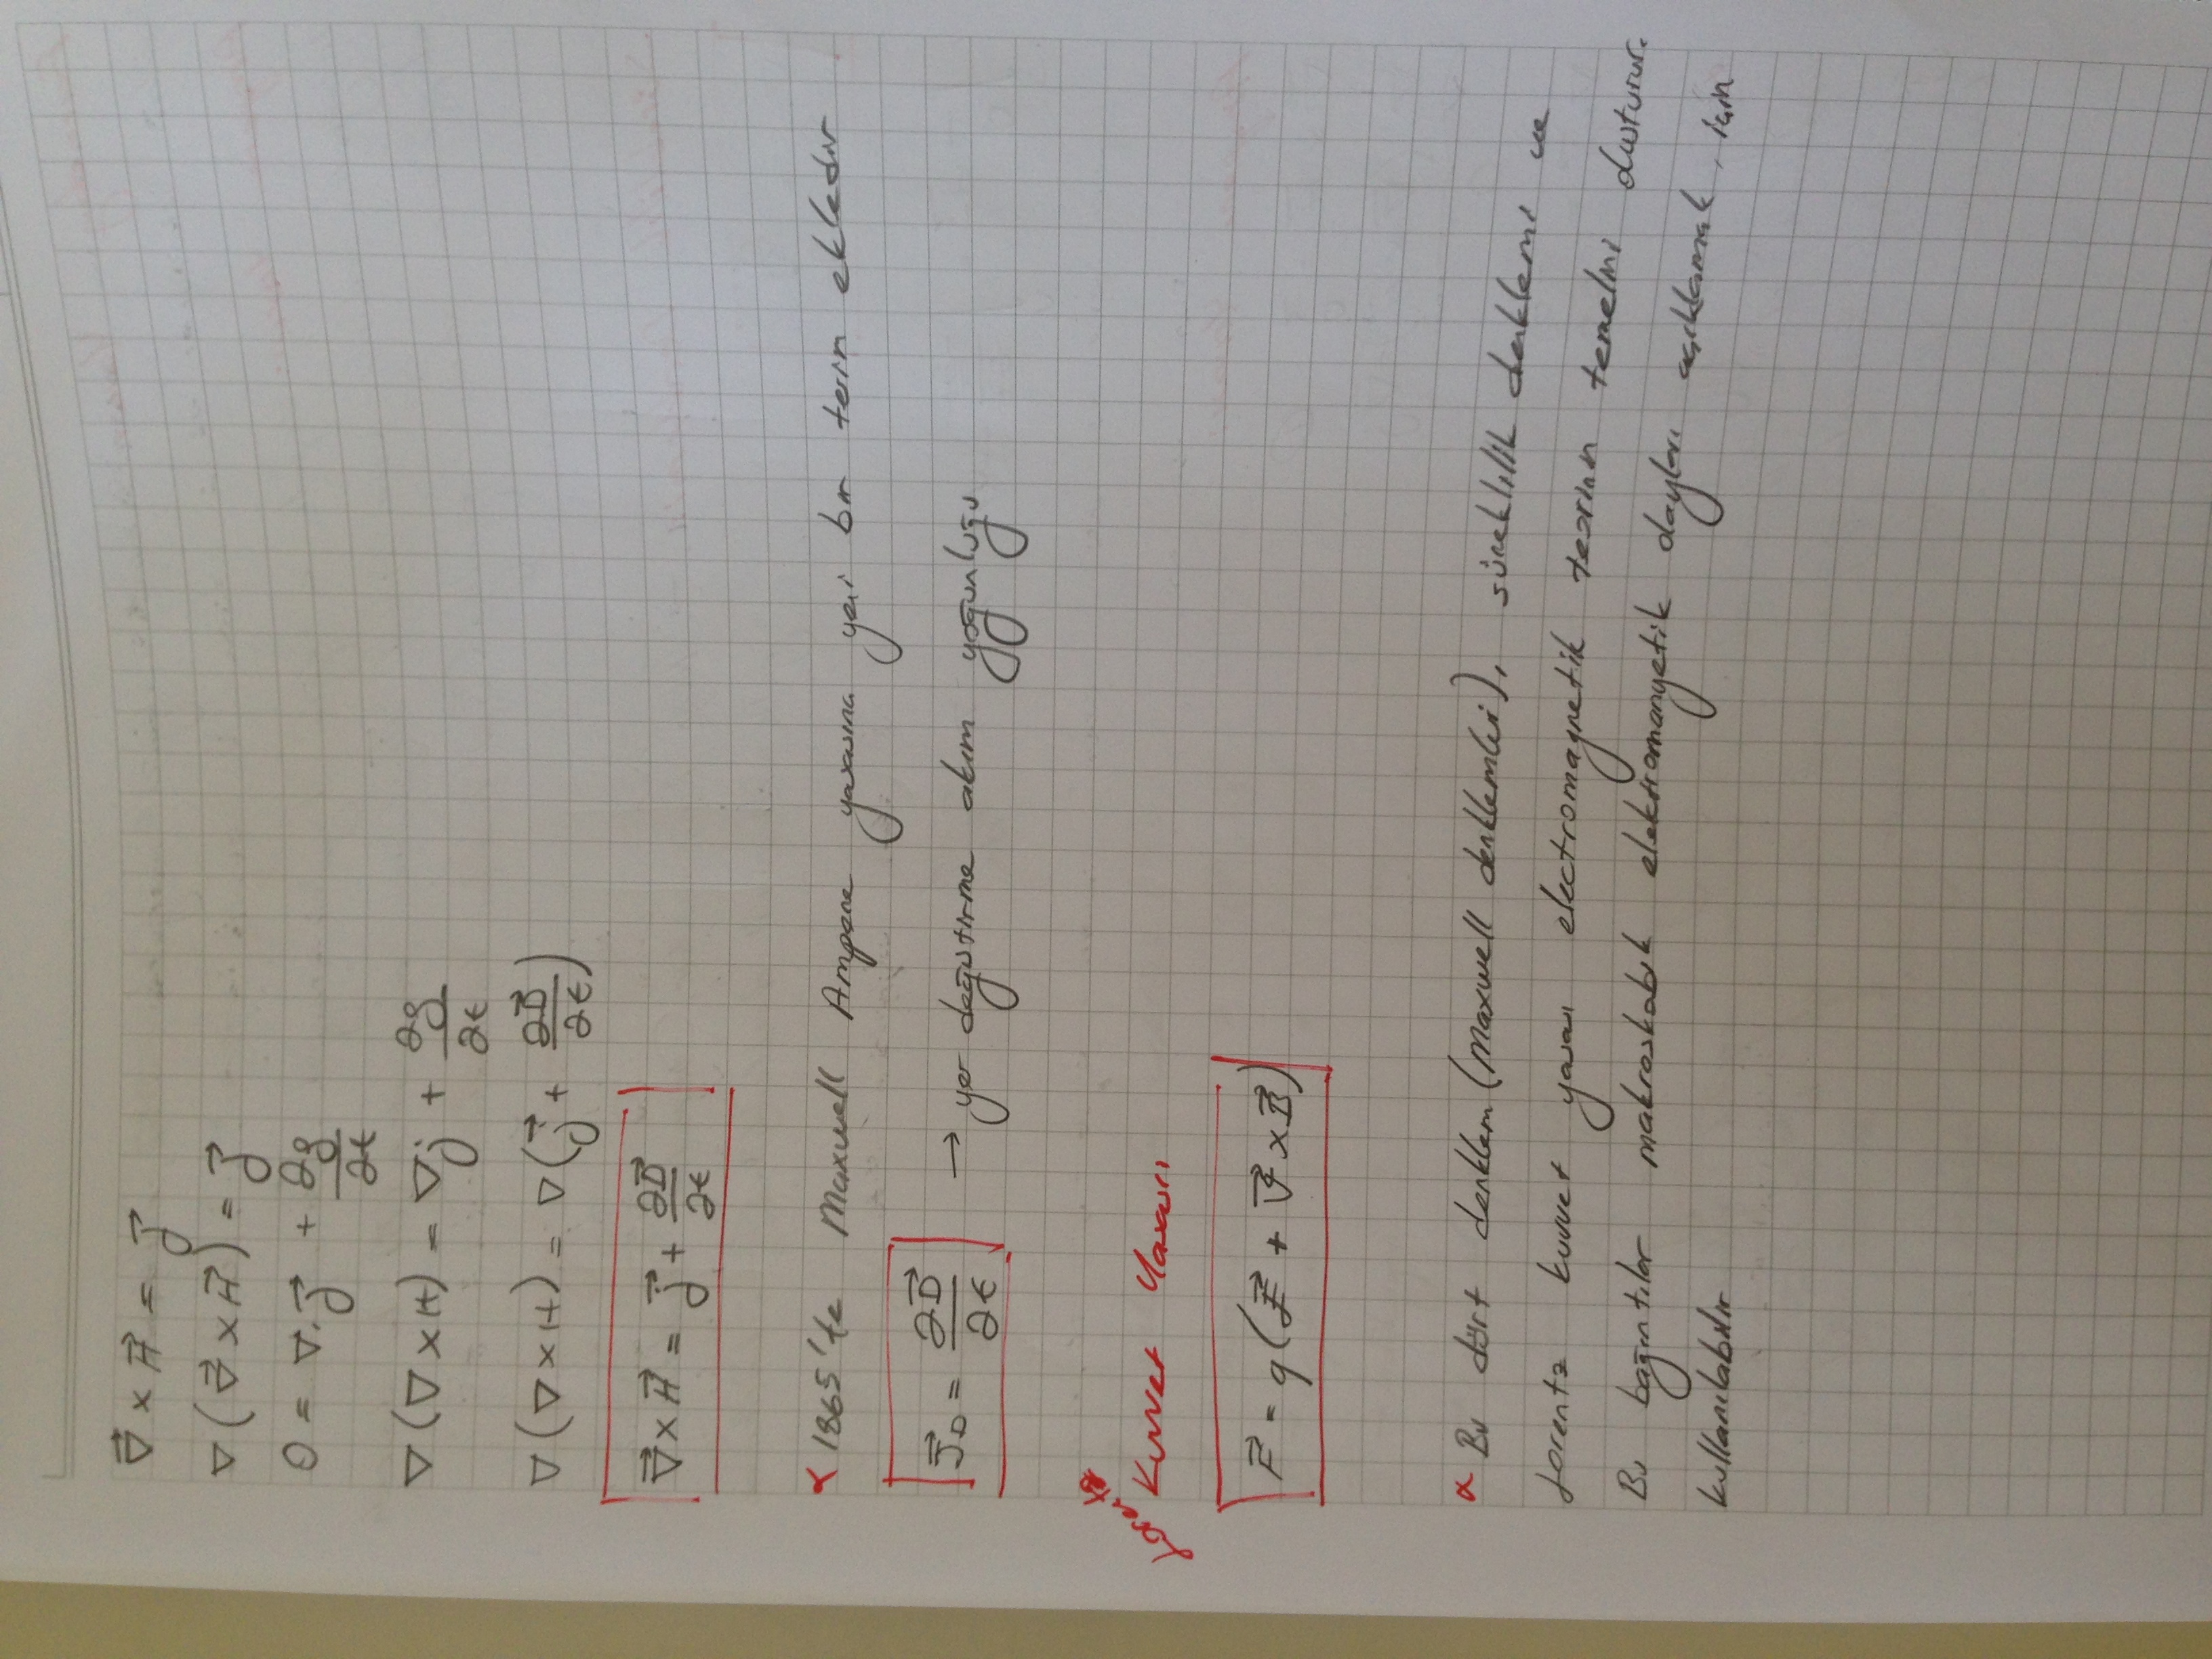 ∇⃗ × H⃗ = J⃗
∇(∇⃗ × H⃗) = J⃗
0 = ∇.J⃗ + ∂ρ/∂t
∇(∇ × H) = ∇j + ∂ρ/∂t
∇(∇ × H) = ∇(j⃗ + ∂D⃗/∂t)
∇⃗ × H⃗ = j⃗ + ∂D⃗/∂t
∝ 1865'te Maxwell Ampere yasasına yeni bir terim ekledir
J⃗D = ∂D⃗/∂t → yer değiştirme akım yoğunluğu
Lorentz
Kuvvet Yasası
F⃗ = q(E⃗ + V⃗ × B⃗)
∝ Bu dört denklem (Maxwell denklemleri), süreklilik denklemi ve
Lorentz kuvvet yasası electromagnetik teorinin temelini oluşturur.
Bu bağıntılar makroskobik elektromanyetik olayları açıklamak için
kullanılabilir